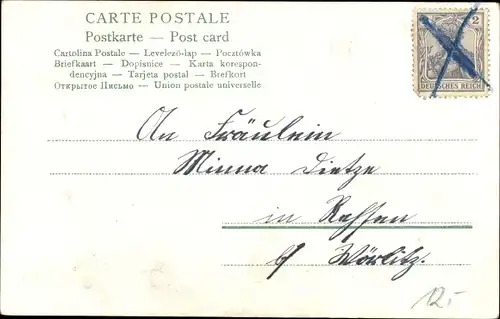 CARTE POSTALE
Postkarte — Post card
Cartolina Postale — Levelező-lap — Pocztówka
Briefkaart — Dopisnice — Karta korespon-
dencyjna — Tarjeta postal — Brefkort
Открытое Письмо — Union postale universelle
2
DEUTSCHES REICH
An Fräulein
Minna Dietze
in Rehsen
b/ Wörlitz.
12.-